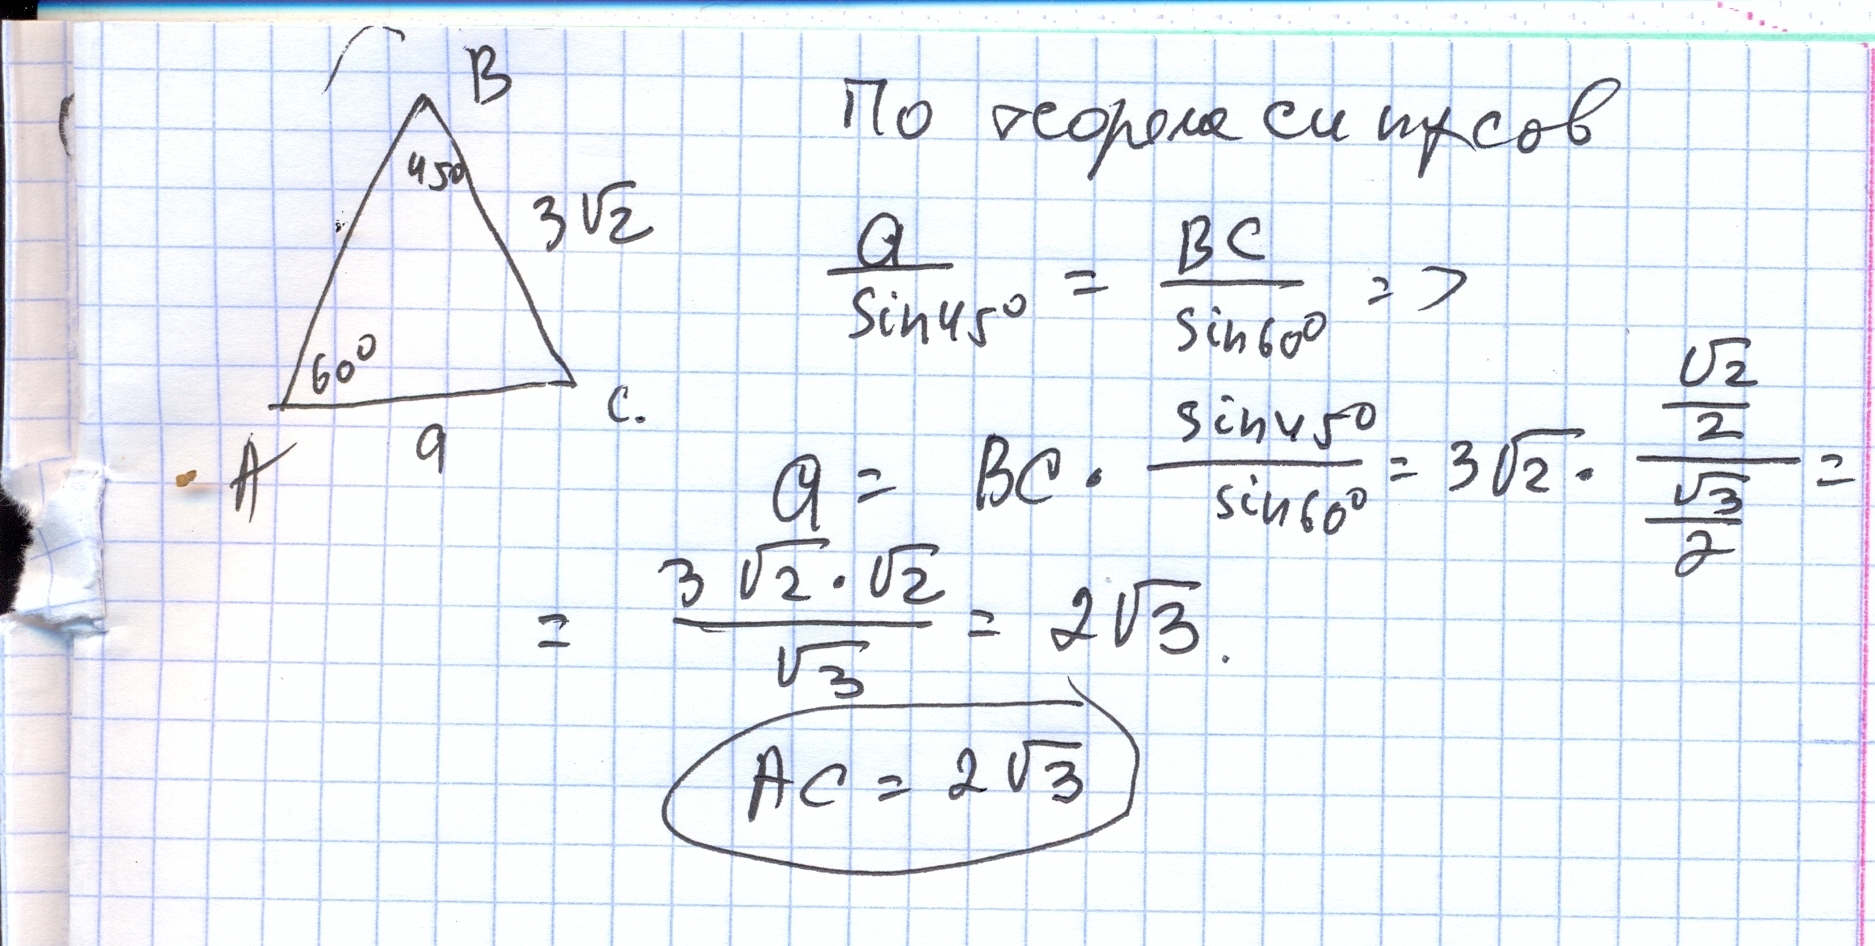 B
45°
3√2
60°
A
a
C.
По теореме синусов
a/sin45° = BC/sin60° =>
a = BC · sin45°/sin60° = 3√2 · (√2/2)/(√3/2) =
= (3√2 · √2)/√3 = 2√3.
AC = 2√3